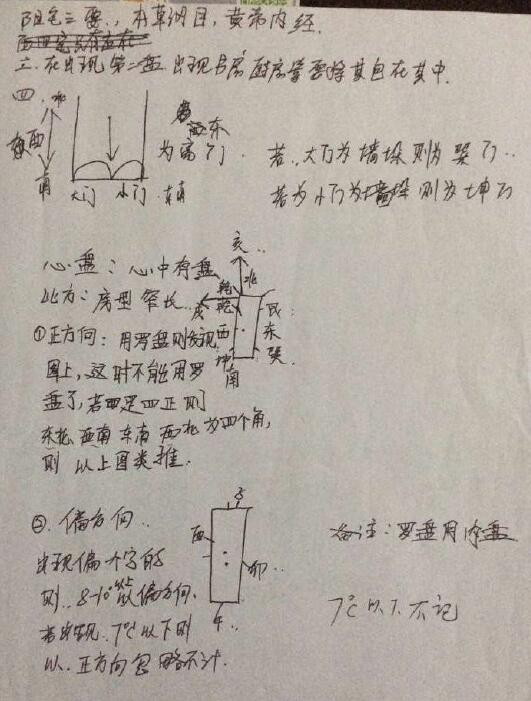 阳宅三要., 本草纲目, 黄帝内经.
三. 在出现第二盘. 出现书房 厨房等要将其包在其中.
四.
北
西
南
大门 小门
东
为富门.
若.大门为墙垛则为哭门..
若为小门为墙垛则为
心盘: 心中有盘
此为: 房型窄长.
亥..
北
乾
戌
西
东
巽.
坤
南
①正方向: 用罗盘则发现
图上, 这时不能用罗
盘了, 若四是四正则
东北 西南 东南 西北为四个角,
则 以上图类推.
②. 偏方向..
出现偏个字的
则..8-10°以偏方向.
若出现..7℃以下则
以.正方向忽略不计.
子
酉
卯..
午..
备注: 罗盘用
7℃以下不记